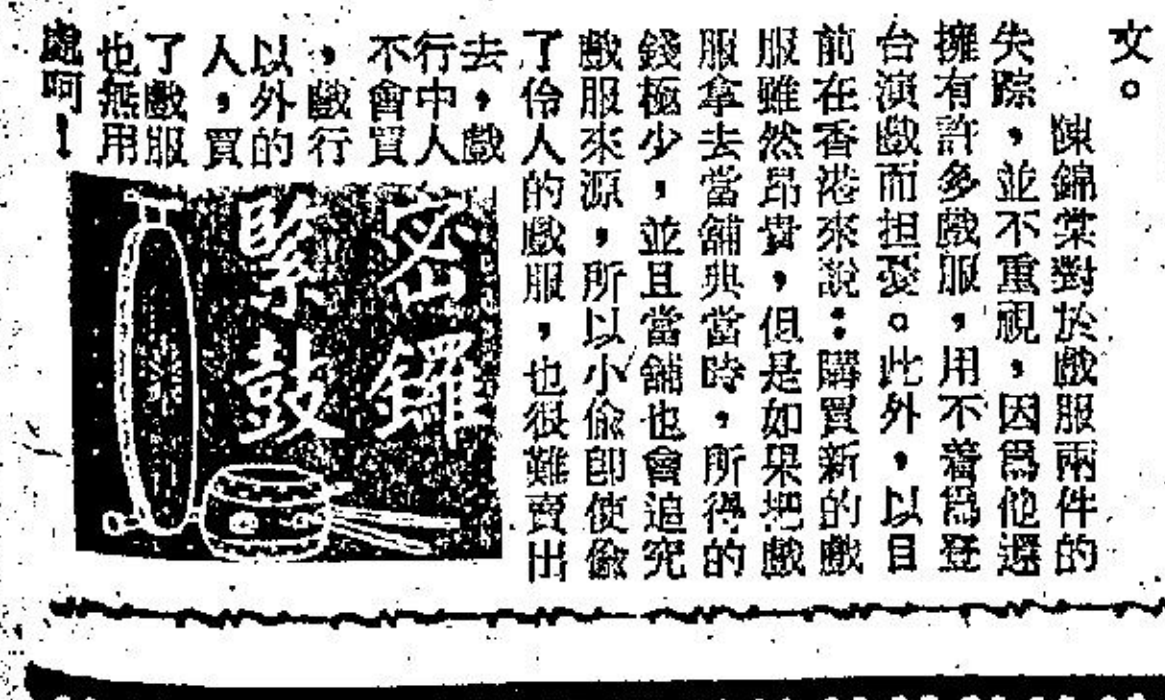 文。
陳錦棠對於戲服兩件的
失踪，並不重視，因爲他還
擁有許多戲服，用不着爲登
台演戲而担憂。此外，以目
前在香港來說：購買新的戲
服雖然昂貴，但是如果把戲
服拿去當舖典當時，所得的
錢極少，並且當舖也會追究
戲服來源，所以小偷即使偸
了伶人的戲服，也很難賣出
去，戲
行中人
不會買
，戲行
以外的
人，買
了戲服
也無用
處呵！
密鑼
緊鼓